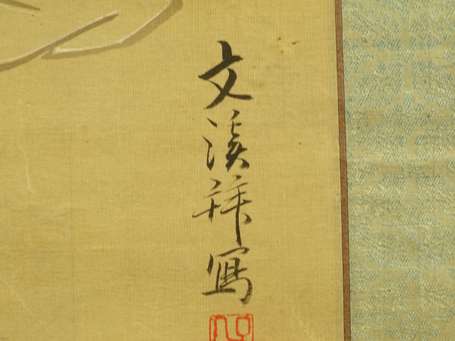 文溪拜寫